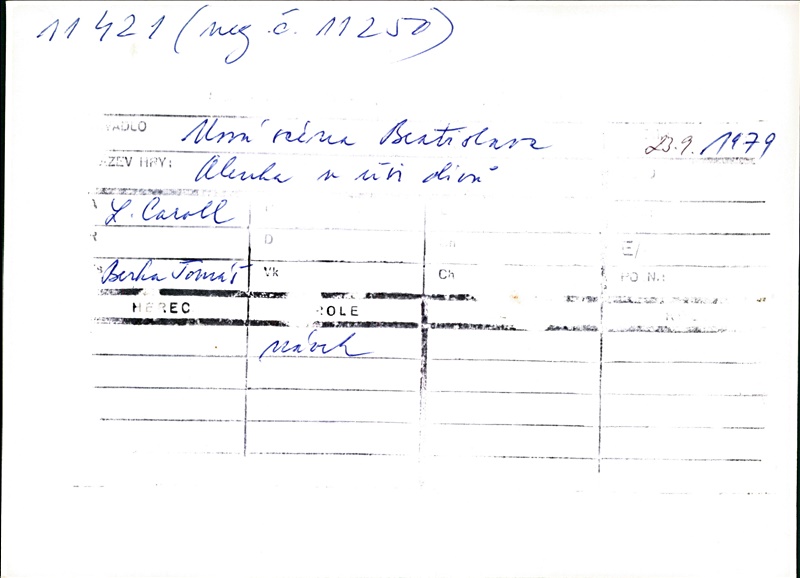 11421 (neg. č. 11250)
VADLO Nová scéna Bratislava 23.9. 1979
ZEV HRY: Alenka v říši divů
L. Caroll
R D E/
Berka Tomáš Vk Ch PO N.:
HEREC OLE
návrh